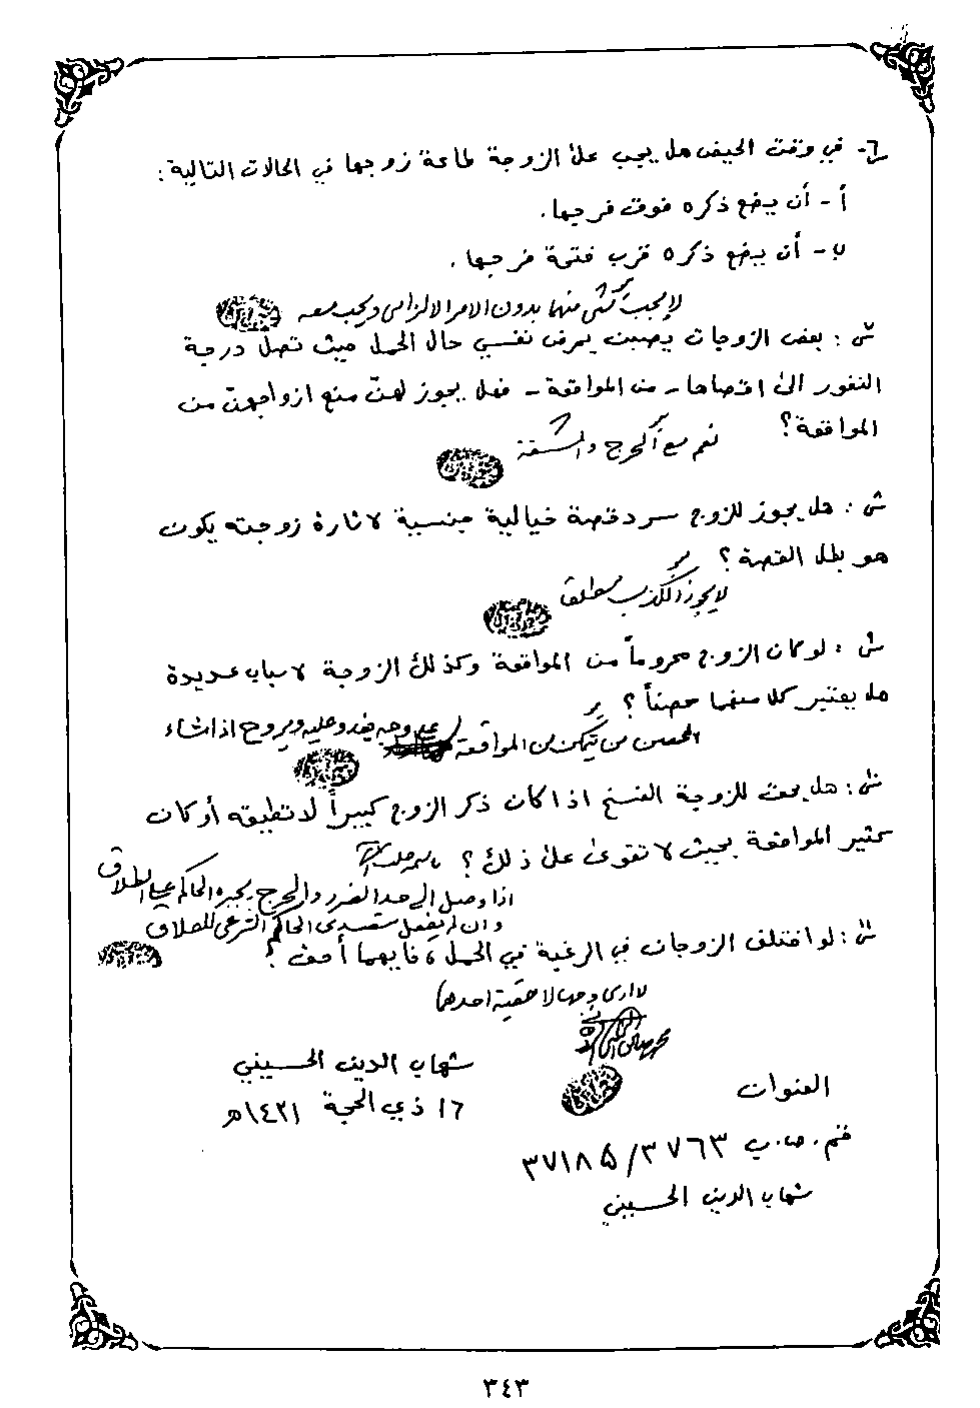 ٦- في وقت الحيض هل يجب على الزوجة طاعة زوجها في الحالات التالية:
أ- أن يضع ذكره فوق فرجها.
ب- أن يضع ذكره قرب فتحة فرجها.
لا يجب شئ منهما بدون الامر الالزامى ويجب معه
س: بعض الزوجات يصبن بمرض نفسي حال الحمل حيث تصل درجة
النفور الى اقصاها - من المواقعة - فهل يجوز لهن منع ازواجهن من
المواقعة؟
نعم مع الحرج والمشقة
س: هل يجوز للزوج سرد قصة خيالية جنسية لاثارة زوجته يكون
هو بطل القصة؟
لا يجوز الكذب مطلقا
س: لو كان الزوج محروماً من المواقعة وكذلك الزوجة لاسباب عديدة
هل يعتبر كلا منهما محصناً؟
المحصن من يتمكن من المواقعة على وجه يغدو عليه ويروح اذا شاء
س: هل يحق للزوجة الفسخ اذا كان ذكر الزوج كبيراً لا تطيقه أو كان
كثير المواقعة بحيث لا تقوى على ذلك؟ باسمه جلت اسمائه
اذا وصل الى حد الضرر والحرج يجبره الحاكم على الطلاق
وان لم يفعل يتصدى الحاكم الشرعى للطلاق
س: لو اختلف الزوجان في الرغبة في الحمل، فأيهما أحق؟
لا ارى وجها لاحقية احدهما
شهاب الدين الحسيني
١٦ ذي الحجة ١٤٢١هـ
العنوان
قم. ص.ب ٣٧٦٣/٣٧١٨٥
شهاب الدين الحسيني
٣٤٣